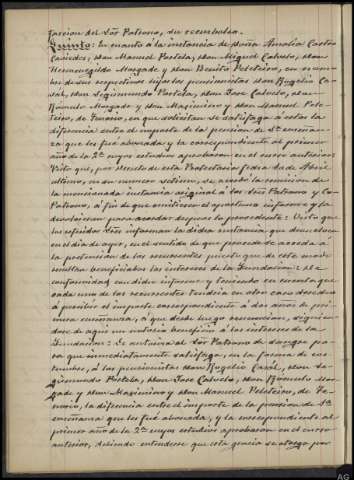 faccion del Sor Patrono, su reembolso.
Quinto: En cuanto á la instancia de Doña Amalia Castro
Cañedes, Don Manuel Portela, Don Miguel Calveto, Don
Hermenegildo Morgade y Don Benito Peleteiro, en nom-
bre de sus respectivos hijos los pensionistas Don Rogelio Ca-
sal, Don Segismundo Portela, Don Jose Calveto, Don
Rómulo Morgade y Don Maximino y Don Manuel Pele-
teiro, de en que solicitan se satisfaga á estos la
diferencia entre el importe de la pension de 1ª enseñan-
za que les fué abonada y la correspondiente al primer
año de la 2ª cuyos estudios aprobaron en el curso anterior:
Visto que, por decreto de este Protectorado fecha de Abril
último, en su número se acordó la remision de
la mencionada instancia original á los Sres Patrono y Co-
Patrono, á fin de que emitieran el oportuno informe y la
devolvieran para acordar despues lo procedente: Visto que
los referidos Sres informan la dicha instancia que devuelven
en el dia de ayer, en el sentido de que procede se acceda á
la pretension de los recurrentes puesto que de este modo
resultan beneficiados los intereses de la Fundacion: De
conformidad con dicho informe y teniendo en cuenta que
cada uno de los recurrentes tendria en otro caso derecho
á percibir el importe correspondiente á dos años de pri-
mera enseñanza, á que desde luego renuncian, siguien-
dose de aqui un notorio beneficio á los intereses de la
Fundacion: Se autoriza al Sor Patrono de Sangro pa-
ra que inmediatamente satisfaga, en la forma de cos-
tumbre, á los pensionistas Don Rogelio Casal, Don Se-
gismundo Portela, Don Jose Calveto, Don Romulo Mor-
gade y Don Maximino y Don Manuel Peleteiro, de
la diferencia entre el importe de la pension de 1ª
enseñanza que les fué abonada, y la correspondiente al
primer año de la 2ª cuyos estudios aprobaron en el curso
anterior, debiendo entenderse que esta gracia se otorga por
AG